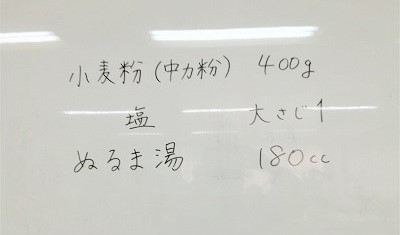 小麦粉(中力粉) 400g
塩 大さじ1
ぬるま湯 180cc